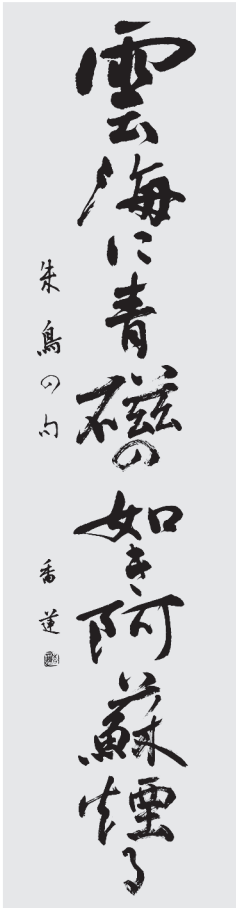 雲海に青磁の如き阿蘇煙る
朱鳥の句 香蓮